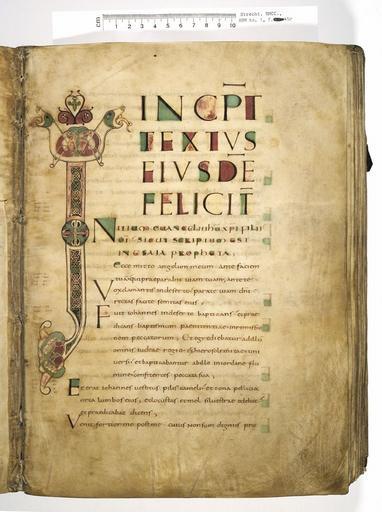 cm 1 2 3 4 5 6 7 8 9 10
Utrecht, RMCC.,
INCĪPT
TEXTVS
EIVSDĒ
FELICIT̄
INITIUM EUANGELII IHU XPI FILII
DĪ SICUT SCRIPTUM EST
IN ESAIA PROPHETA,
Ecce mitto angelum meum ante faciem
tuam qui praeparabit uiam tuam ante te
Vox clamantis in deserto parate uiam dn̄i
rectas facite semitas eius,
Fuit iohannes in deserto baptizans et prae
dicans baptismum paenitentiae in remissio
nem peccatorum, Et egrediebatur ad illū
omnis iudeae regio et hierosolimitae uni
uersi et baptizabantur ab illo in iordane flu
mine confitentes peccata sua,
Et erat iohannes uestitus pilis cameli et zona pellicia
circa lumbos eius, et locustas et mel siluestre edebat
et praedicabat dicens,
Venit fortior me post me cuius non sum dignus pro